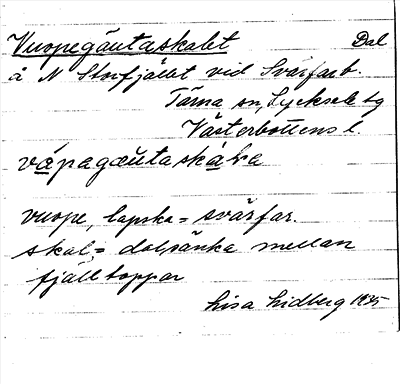 Vuopegäutaskalet Dal
å N Storfjället vid Svärfarb.
Tärna sn, Lycksele tg
Västerbottens l.
våpagæutaskála
vuope, lapska = svärfar.
skal = dalsänka mellan
fjälltoppar
Lisa Lidberg 1935